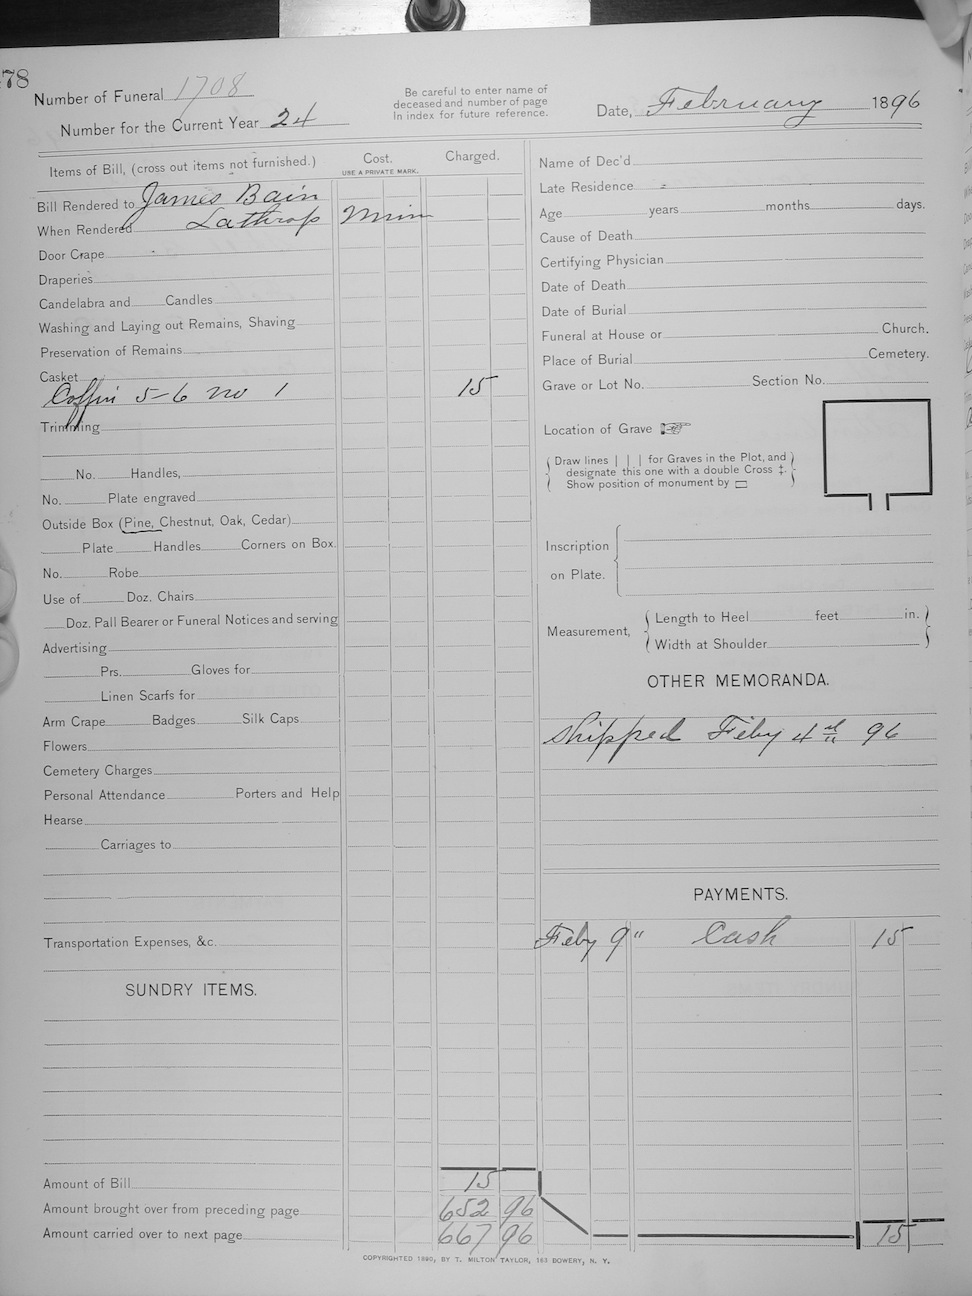 78
Number of Funeral 1708
Number for the Current Year 24
Be careful to enter name of
deceased and number of page
In index for future reference.
Date, February 1896
Items of Bill, (cross out items not furnished.)
Cost.
USE A PRIVATE MARK.
Charged.
Bill Rendered to James Bain
When Rendered Lathrop Minn
Door Crape
Draperies
Candelabra and Candles
Washing and Laying out Remains, Shaving
Preservation of Remains
Casket
Coffin 5-6 no 1 15
Trimming
No. Handles,
No. Plate engraved
Outside Box (Pine, Chestnut, Oak, Cedar)
Plate Handles Corners on Box.
No. Robe
Use of Doz. Chairs
Doz. Pall Bearer or Funeral Notices and serving
Advertising
Prs. Gloves for
Linen Scarfs for
Arm Crape Badges Silk Caps
Flowers
Cemetery Charges
Personal Attendance Porters and Help
Hearse
Carriages to
Transportation Expenses, &c.
SUNDRY ITEMS.
Amount of Bill 15
Amount brought over from preceding page 652 96
Amount carried over to next page 667 96
Name of Dec'd
Late Residence
Age years months days.
Cause of Death
Certifying Physician
Date of Death
Date of Burial
Funeral at House or Church.
Place of Burial Cemetery.
Grave or Lot No. Section No.
Location of Grave
Draw lines | | | for Graves in the Plot, and
designate this one with a double Cross ‡.
Show position of monument by
Inscription
on Plate.
Measurement,
Length to Heel feet in.
Width at Shoulder
OTHER MEMORANDA.
Shipped Feby 4 96
PAYMENTS.
Feby 9" Cash 15
15
COPYRIGHTED 1890, BY T. MILTON TAYLOR, 163 BOWERY, N. Y.